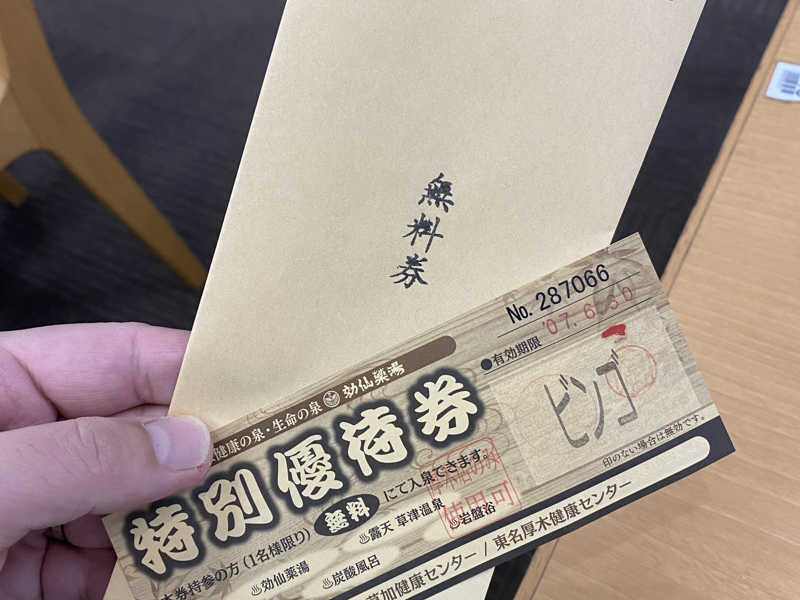 無料券
No. 287066
●有効期限 '07.6.30
健康の泉・生命の泉 効仙薬湯
特別優待券
ビンゴ
印のない場合は無効です。
本券持参の方(1名様限り) 無料 にて入泉できます。
使用可
♨効仙薬湯 ♨露天 草津温泉 ♨岩盤浴
♨炭酸風呂
草加健康センター / 東名厚木健康センター